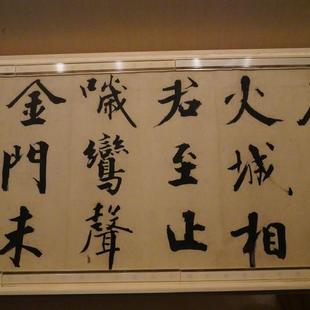 火城相
君至止
噦鸞聲
金門未